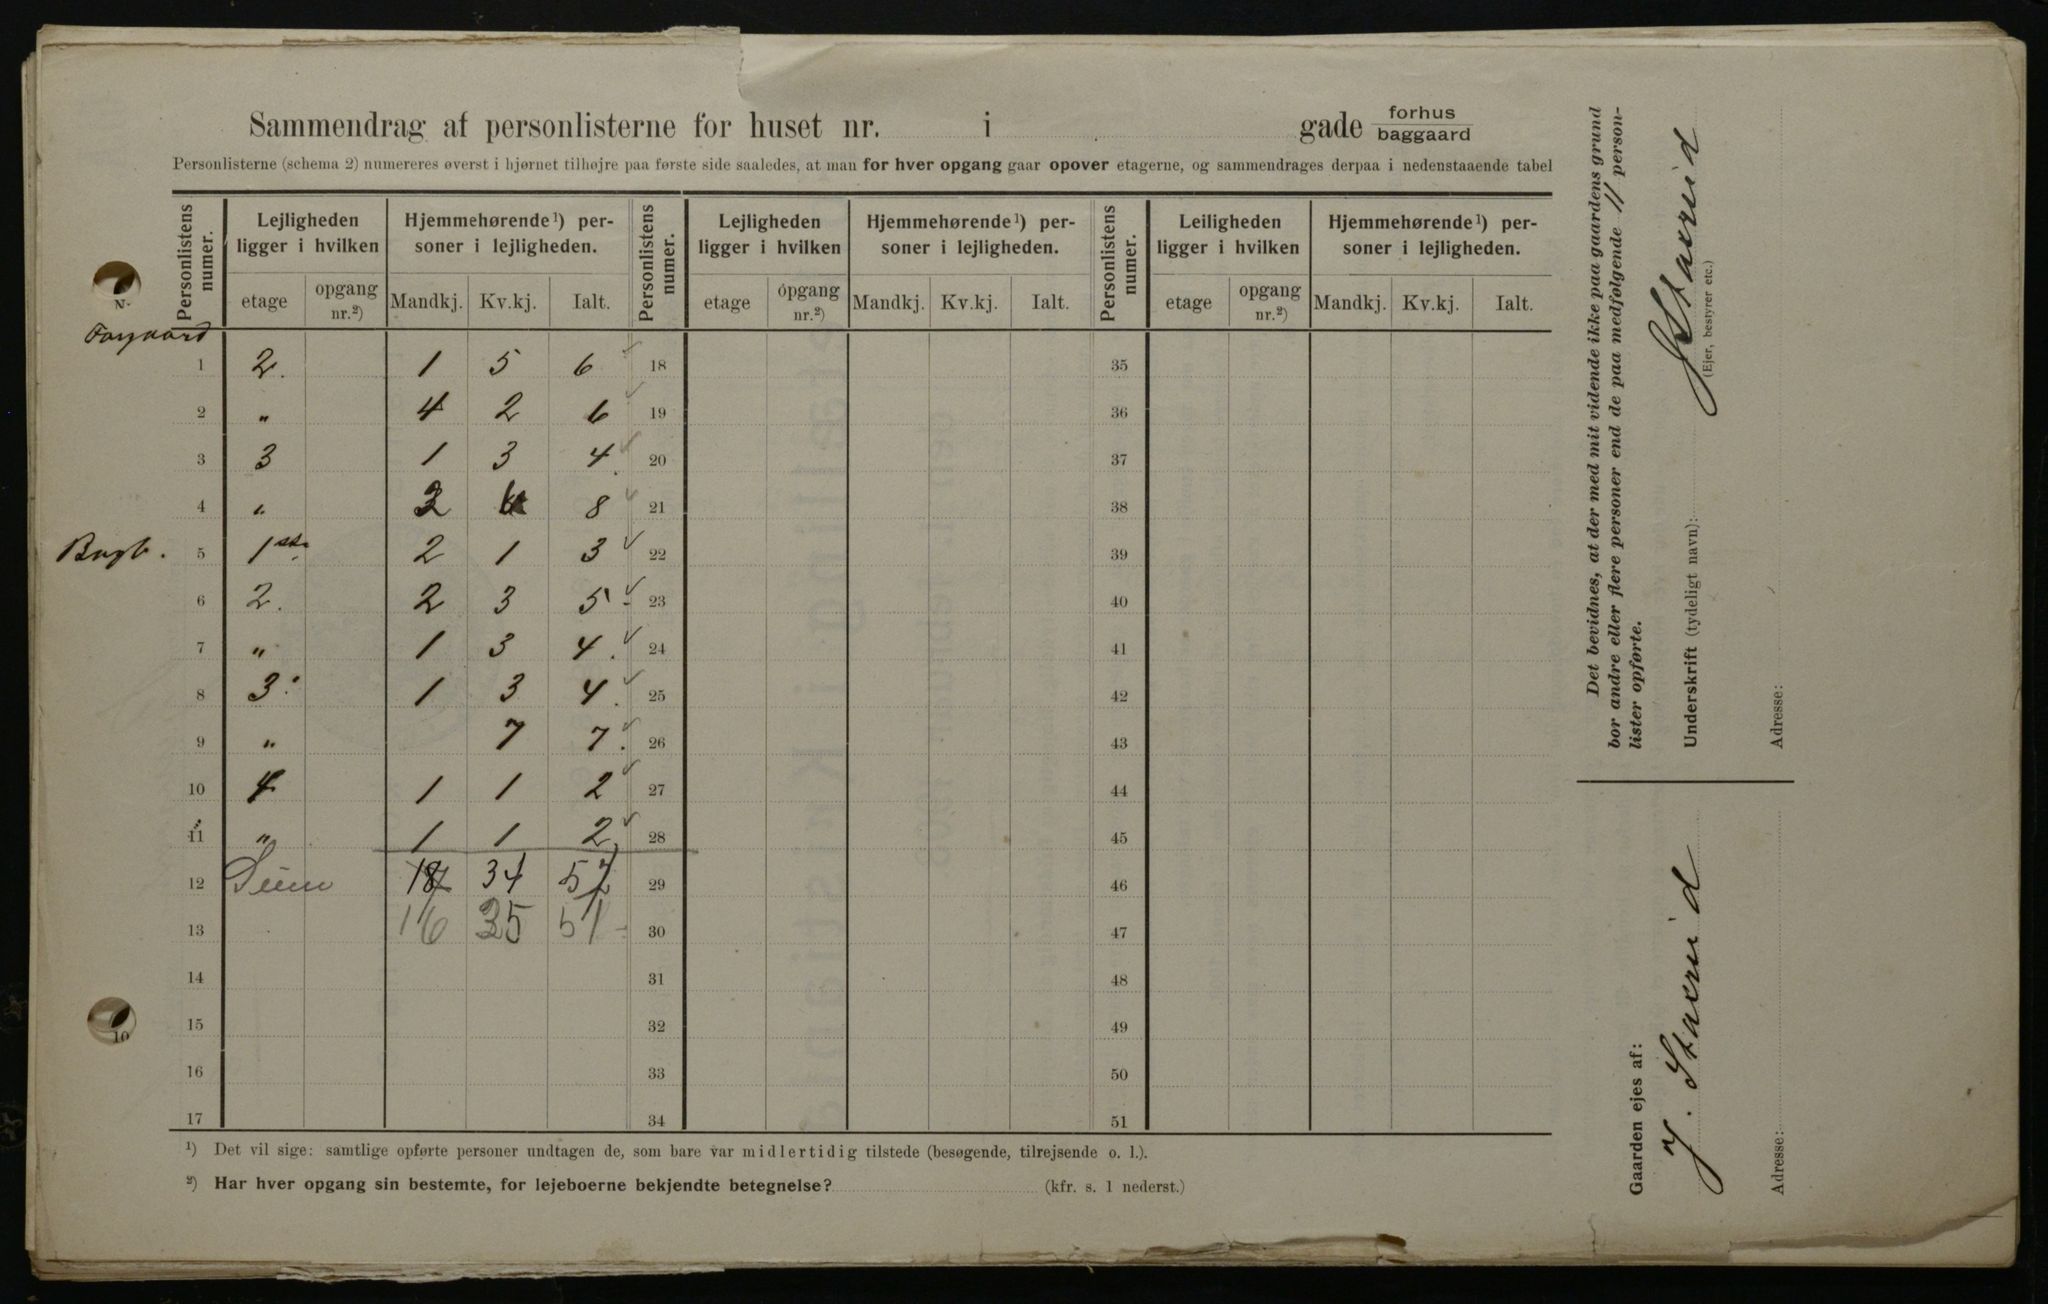 Sammendrag af personlisterne for huset nr. i gade forhus baggaard
Personlisterne (schema 2) numereres øverst i hjørnet tilhøjre paa første side saaledes, at man for hver opgang gaar opover etagerne, og sammendrages derpaa i nedenstaaende tabel
Personlistens numer. Lejligheden ligger i hvilken Hjemmehørende ¹) personer i lejligheden. Personlistens numer. Lejligheden ligger i hvilken Hjemmehørende ¹) personer i lejligheden. Personlistens numer. Leiligheden ligger i hvilken Hjemmehørende ¹) personer i lejligheden.
etage opgang nr.²) Mandkj. Kv.kj. Ialt. etage opgang nr.²) Mandkj. Kv.kj. Ialt. etage opgang nr.²) Mandkj. Kv.kj. Ialt.
N-
Forgaard
1 2. 1 5 6 18 35
2 " 4 2 6 19 36
3 3 1 3 4. 20 37
4 " 2 8 21 38
Bagb. 5 1ste 2 1 3 22 39
6 2. 2 3 5 23 40
7 " 1 3 4. 24 41
8 3. 1 3 4. 25 42
9 " 7 7. 26 43
10 4 1 1 2 27 44
11 " 1 1 2 28 45
12 34 29 46
13 16 35 51 30 47
14 31 48
15 32 49
16 33 50
17 34 51
10
¹) Det vil sige: samtlige opførte personer undtagen de, som bare var midlertidig tilstede (besøgende, tilrejsende o. l.).
²) Har hver opgang sin bestemte, for lejeboerne bekjendte betegnelse? (kfr. s. 1 nederst.)
Det bevidnes, at der med mit vidende ikke paa gaardens grund
bor andre eller flere personer end de paa medfølgende 11 person-
lister opførte.
Underskrift (tydeligt navn): J Staxrud
(Ejer, bestyrer etc.)
Adresse:
Gaarden ejes af:
J. Staxrud
Adresse: